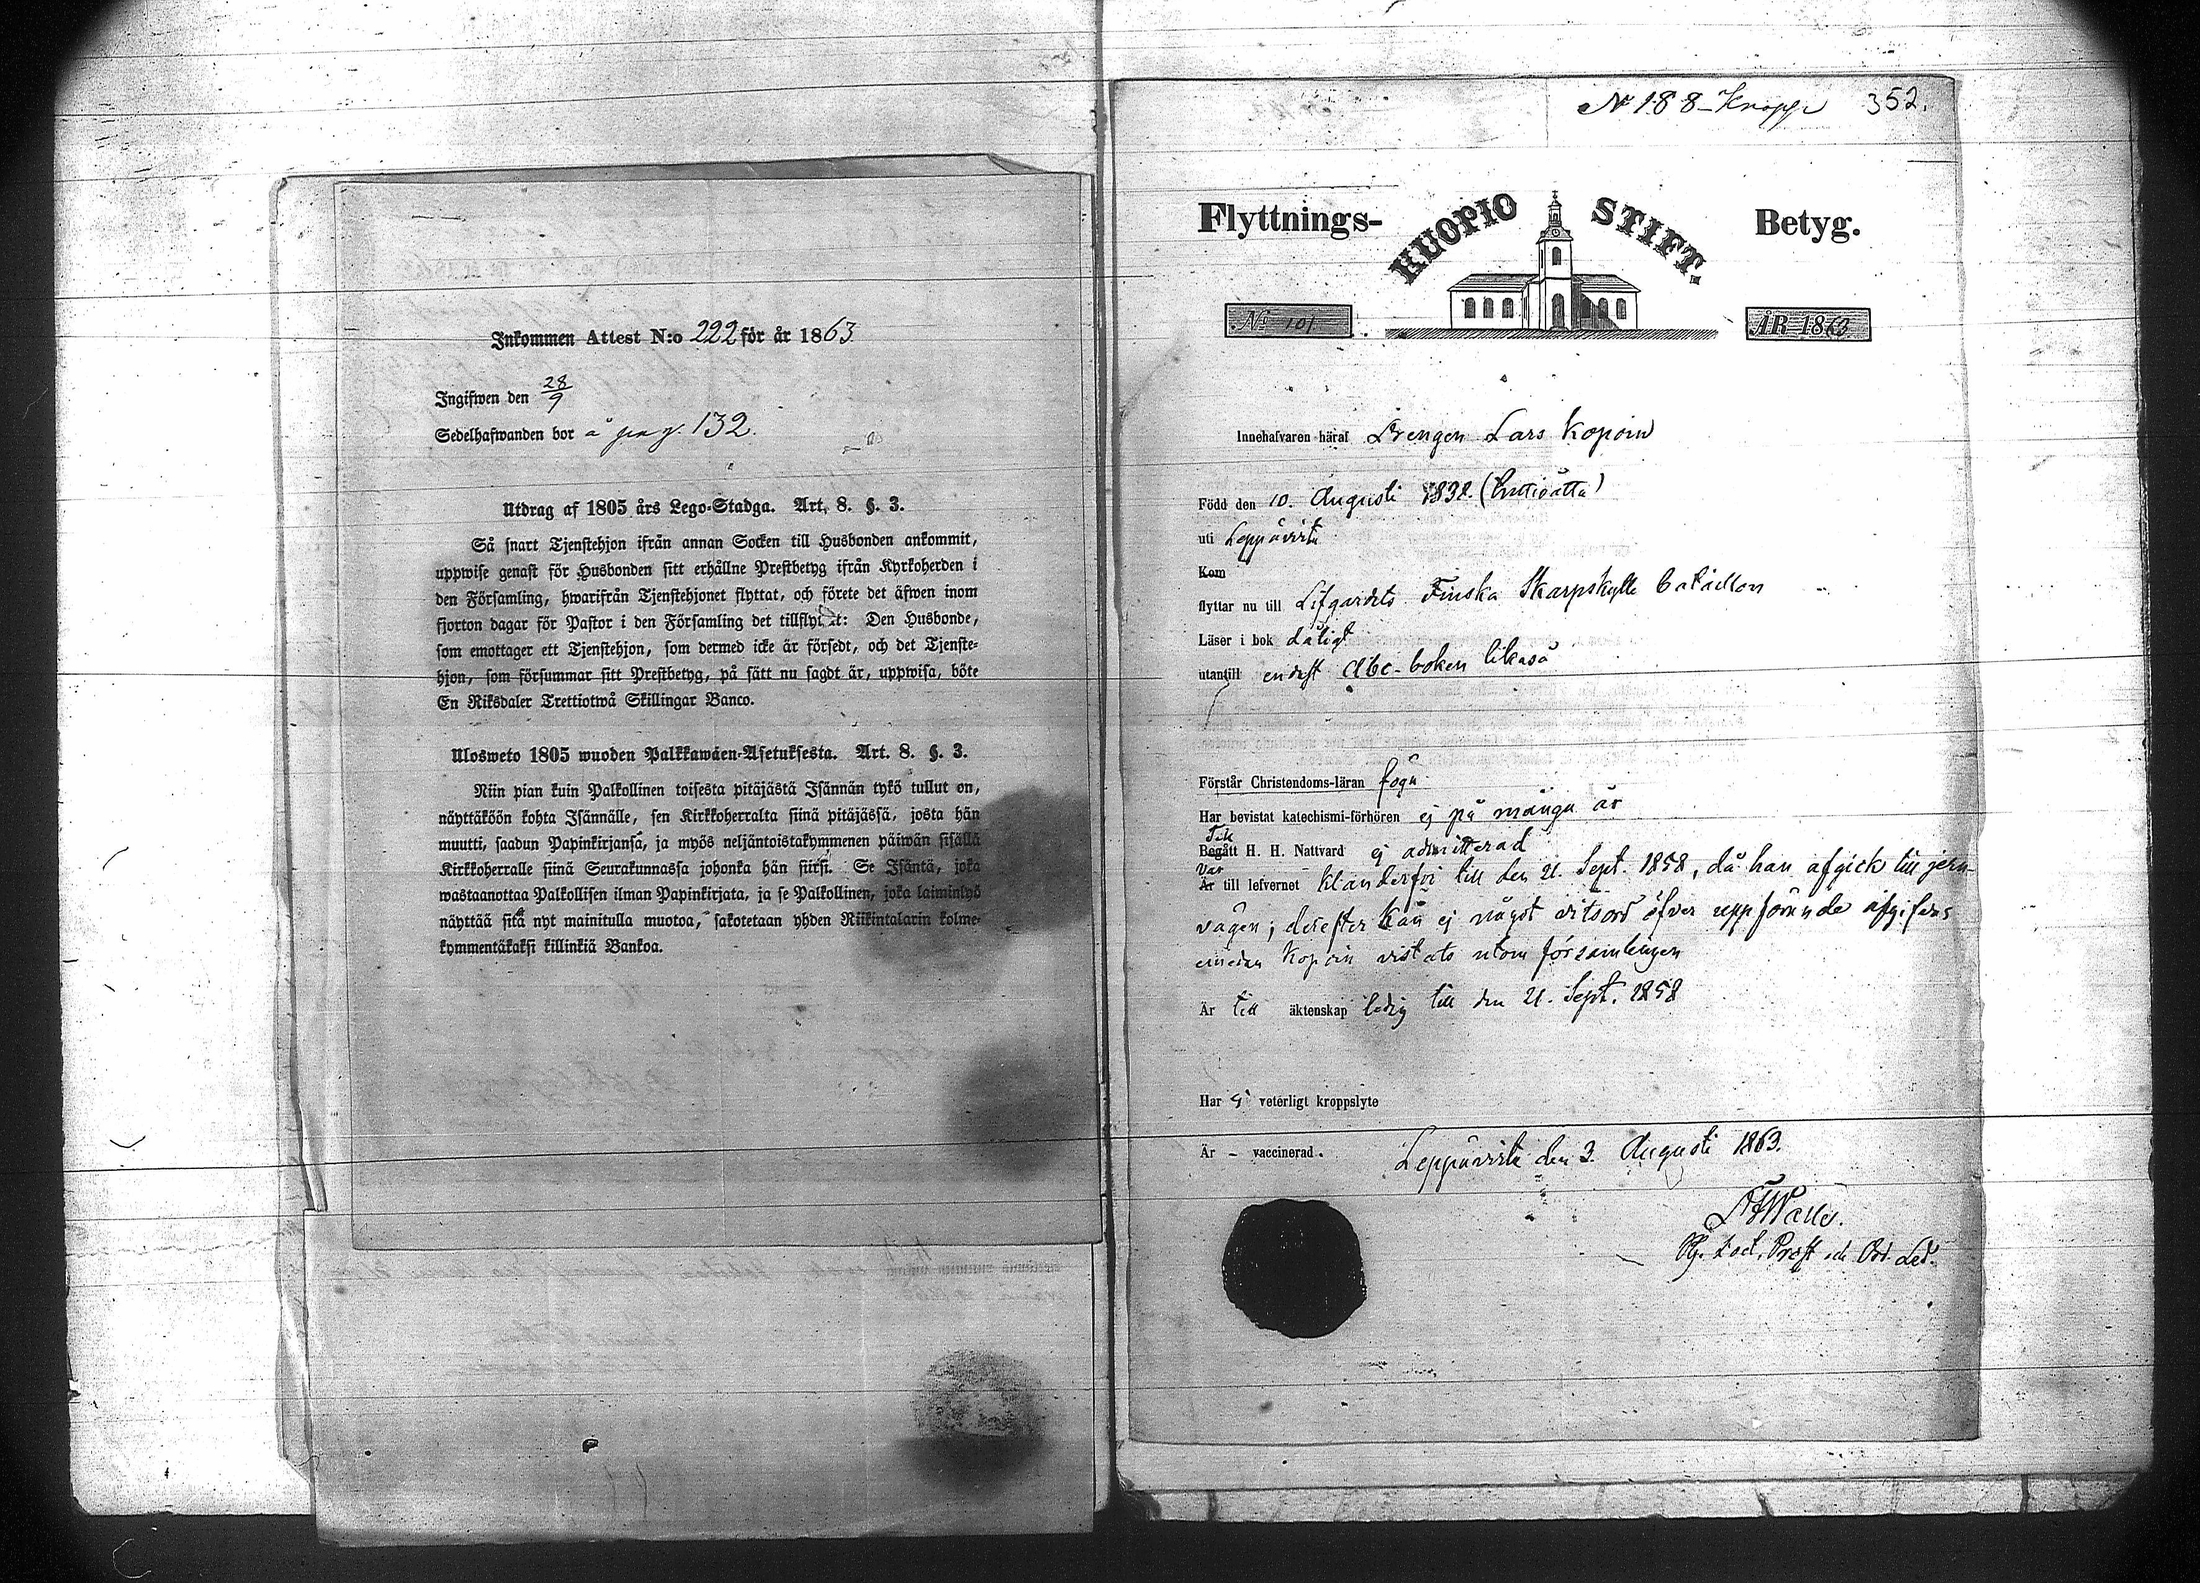 Inkommen Attest N:o 222 för år 1863
Ingifwen den 28/9
Sedelhafwanden bor å pag. 132.
Utdrag af 1805 års Lego-Stadga. Art. 8. §. 3.
Så snart Tjenstehjon ifrån annan Socken till Husbonden ankommit,
uppwise genast för Husbonden sitt erhållne Prestbetyg ifrån Kyrkoherden i
den Församling, hwarifrån Tjenstehjonet flyttat, och förete det äfwen inom
fjorton dagar för Pastor i den Församling det tillflyttat: Den Husbonde,
som emottager ett Tjenstehjon, som dermed icke är försedt, och det Tjenste-
hjon, som försummar sitt Prestbetyg, på sätt nu sagdt är, uppwisa, böte
En Riksdaler Trettiotwå Skillingar Banco.
Ulosweto 1805 wuoden Palkkawäen-Asetuksesta. Art. 8. §. 3.
Niin pian kuin Palkollinen toisesta pitäjästä Isännän tykö tullut on,
näyttäköön kohta Isännälle, sen Kirkkoherralta siinä pitäjässä, josta hän
muutti, saadun Papinkirjansa, ja myös neljäntoistakymmenen päiwän sisällä
Kirkkoherralle siinä Seurakunnassa johonka hän siirsi. Se Isäntä, joka
wastaanottaa Palkollisen ilman Papinkirjata, ja se Palkollinen, joka laiminlyö
näyttää sitä nyt mainitulla muotoa, sakotetaan yhden Riikintalarin kolme-
kymmentäkaksi killinkiä Bankoa.
N 188 - Knapp 352.
Flyttnings- KUOPIO STIFT. Betyg.
No 101 ÅR 1863
Innehafvaren häraf Drengen Lars Kopoin
Född den 10. Augusti 1838. (trettioåtta)
uti Leppävirta
Kom
flyttar nu till Lifgardets Finska Skarpskytte bataillon
Läser i bok dåligt
utantill endast Abc-boken likaså
Förstår Christendoms-läran föga
Har bevistat katechismi-förhören ej på många år
Begått H. H. Nattvard ej admitterad
Var
Är till lefvernet klanderfri till den 21. Sept. 1858, då han afgick till jern-
vägen; derefter kan ej något vitsord öfver uppförande afgifvas
emedan Kopoin vistats utom församlingen
Är till äktenskap ledig till den 21. Sept. 1858
Har ej veterligt kroppslyte
Är - vaccinerad.
Leppävirta den 3. Augusti 1863.
Prost och